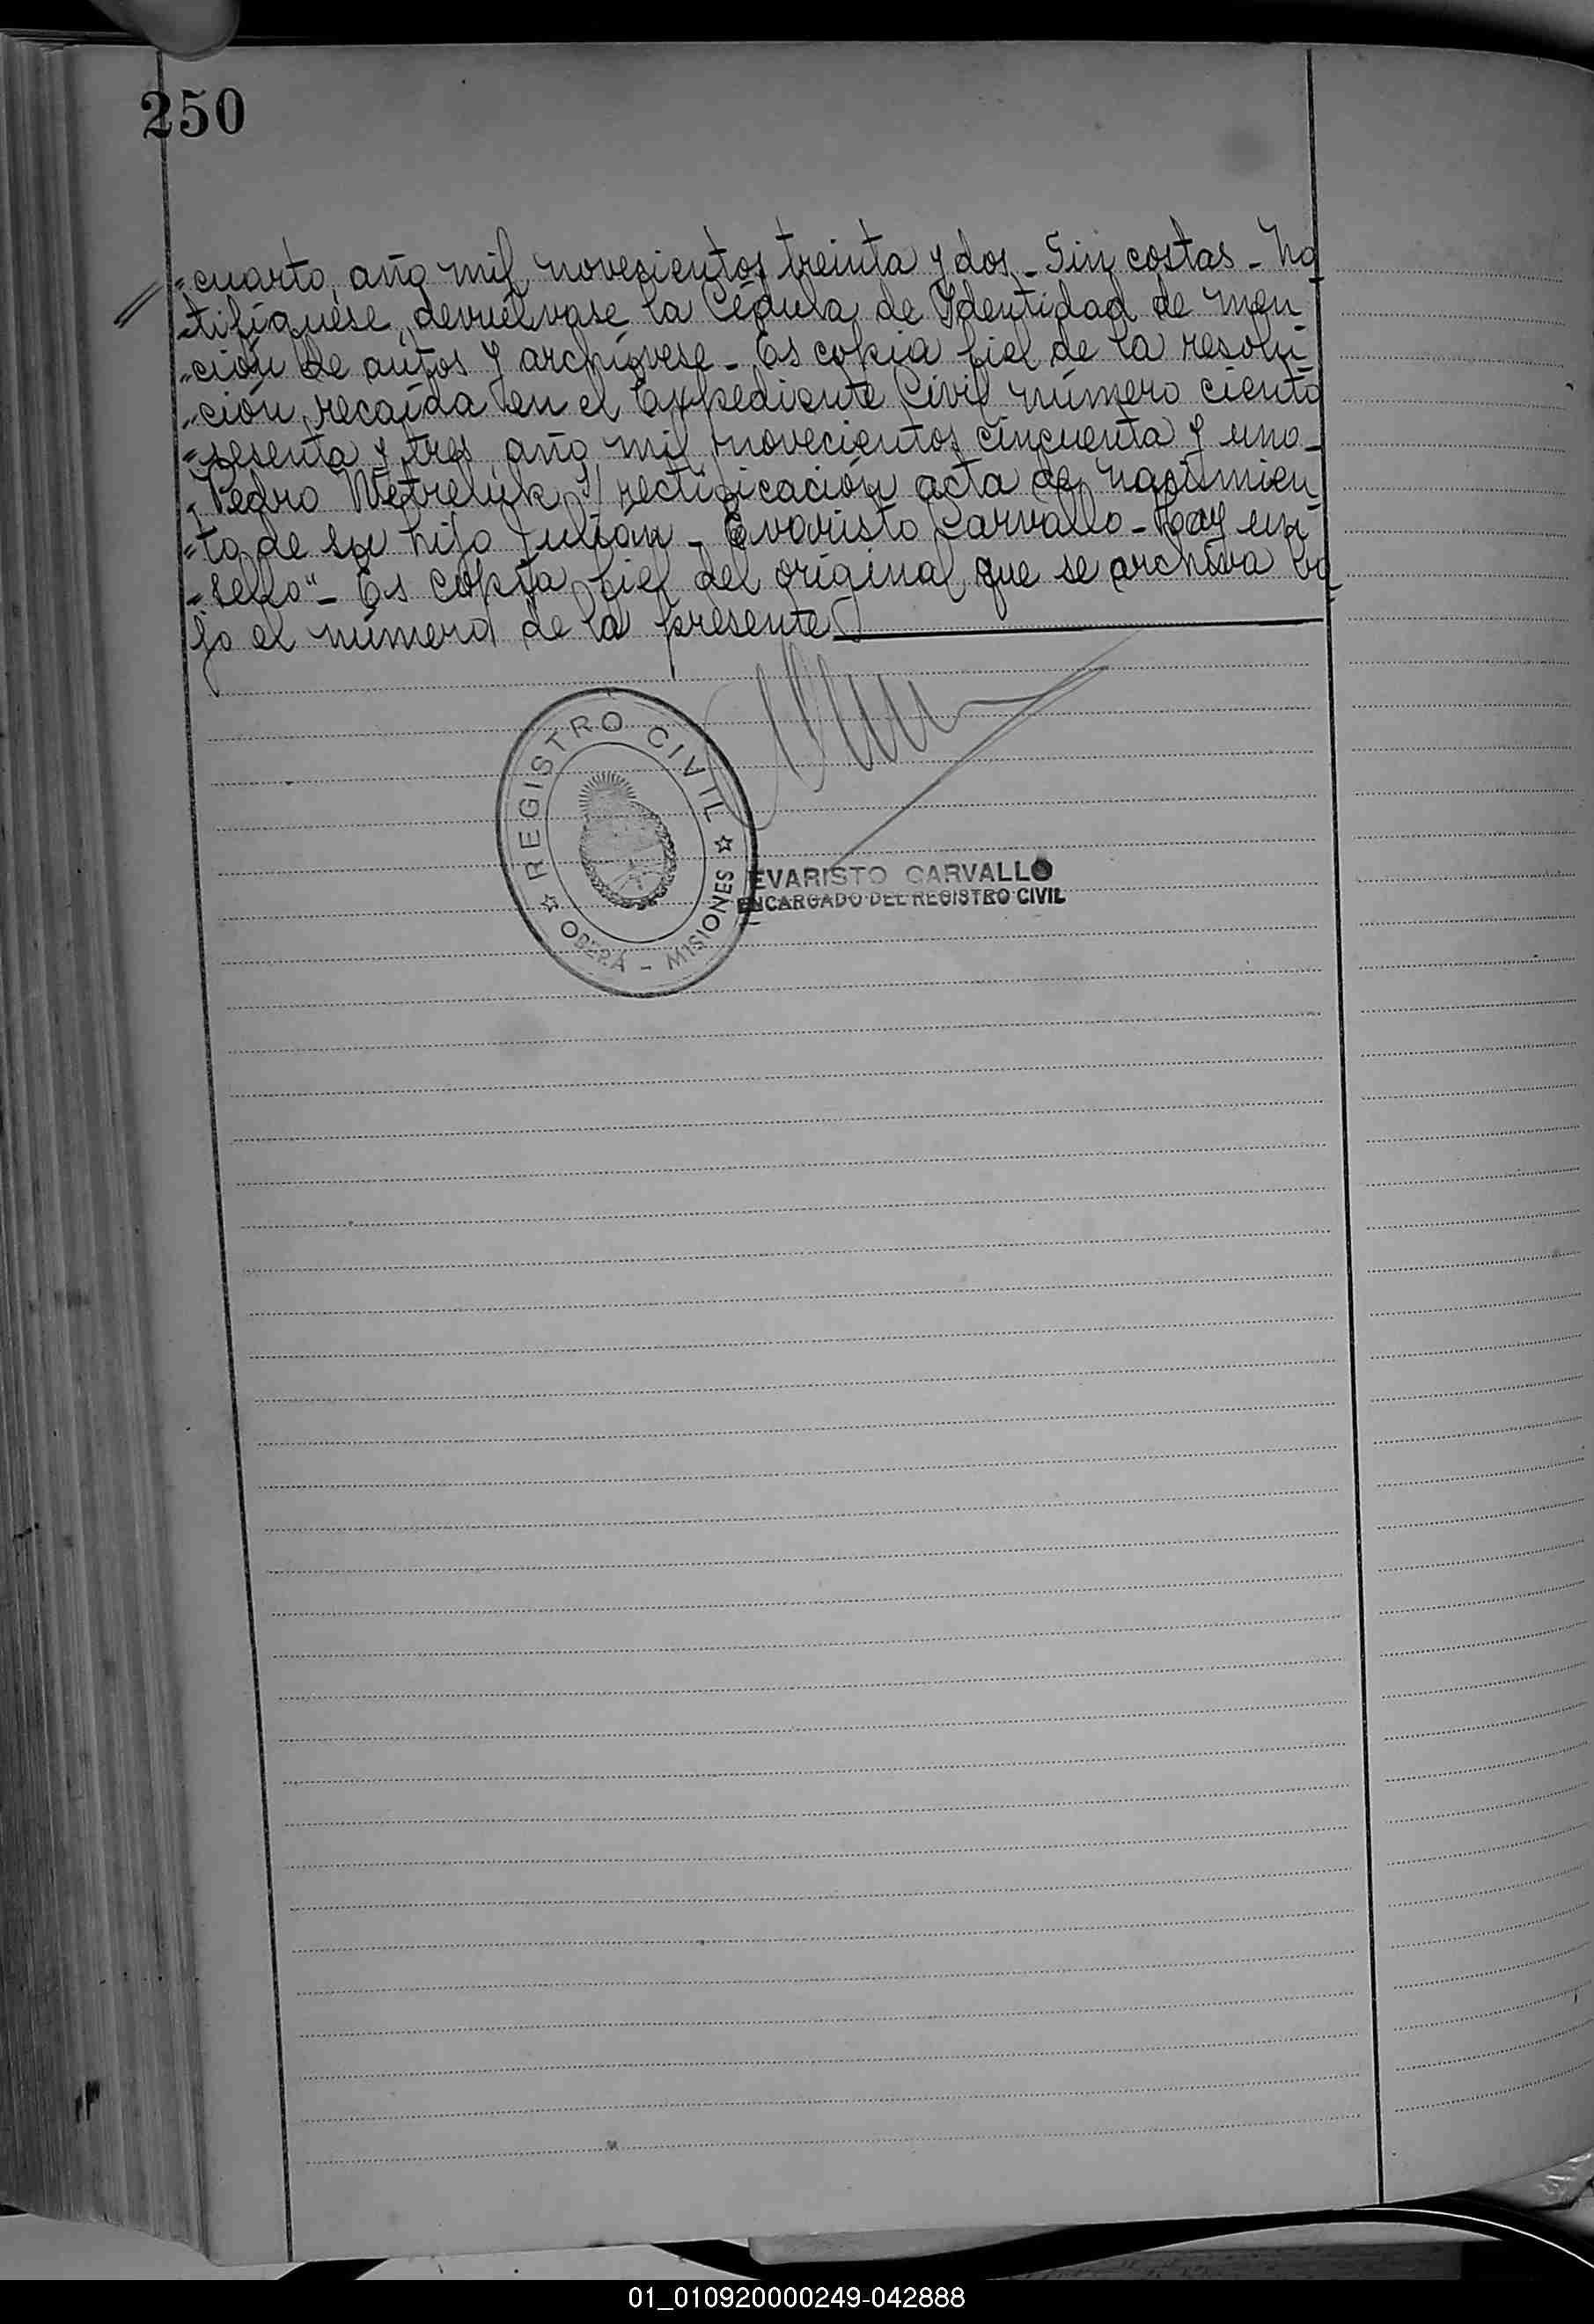 250
"cuarto, año mil novecientos treinta y dos - Sin costas - No
"tifíquese, devuélvase la Cédula de Identidad de men
"ción de autos y archívese - Es copia fiel de la resolu
"ción recaída en el Expediente Civil número ciento
"sesenta y tres, año mil novecientos cincuenta y uno -
"Pedro Wetreluk S/ rectificación acta de nacimien
"to de su hijo Julián - Evaristo Carvallo - Hay un
"sello" - Es copia fiel del original que se archiva ba
jo el número de la presente
REGISTRO CIVIL
OBERÁ - MISIONES
EVARISTO CARVALLO
ENCARGADO DEL REGISTRO CIVIL
01_010920000249-042888